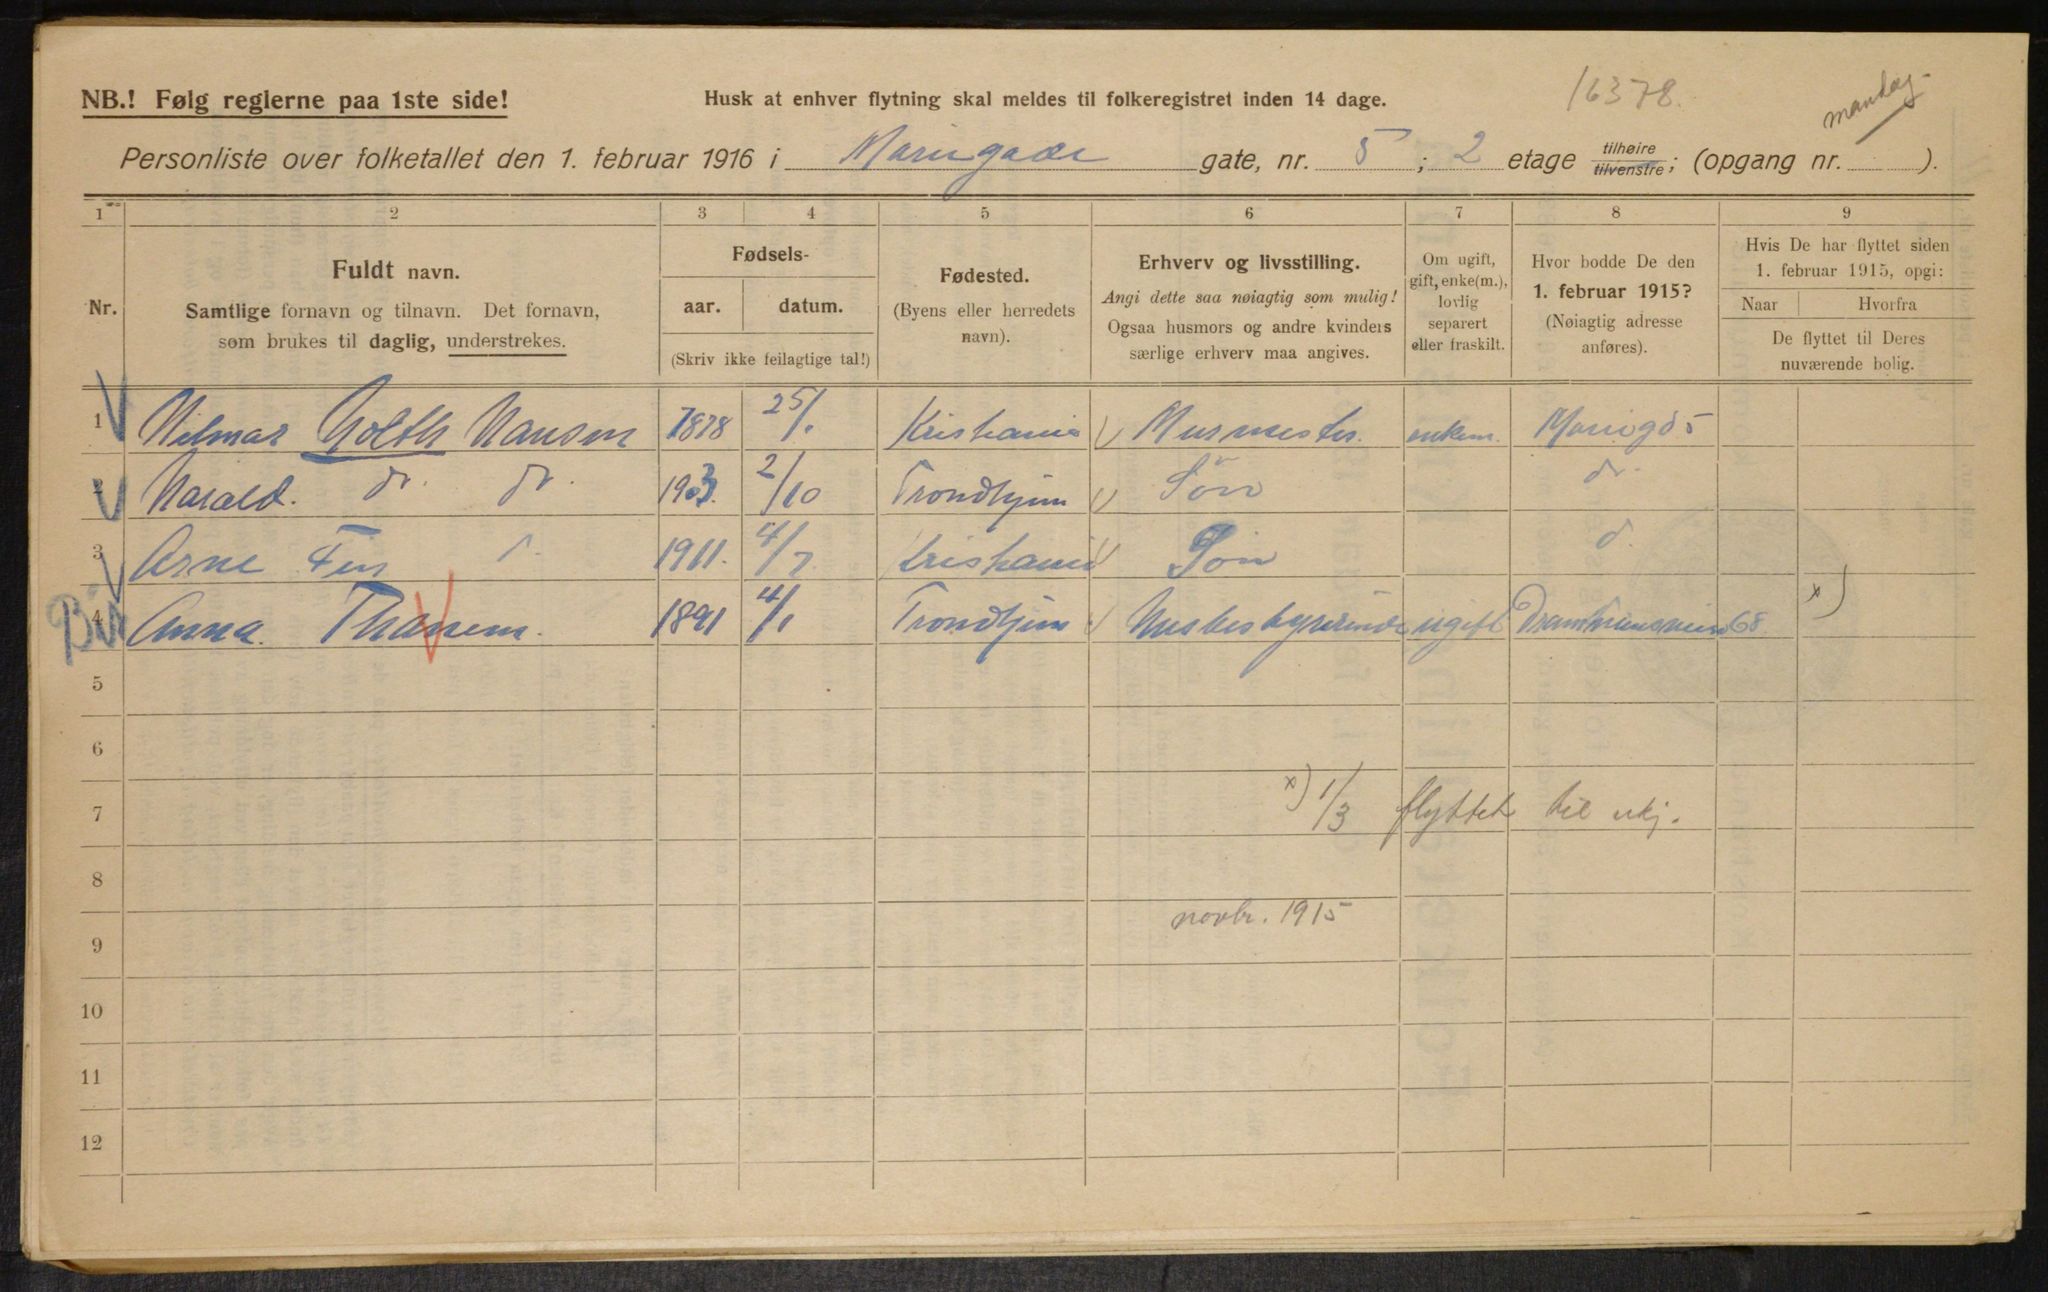 16378.
mandag
NB.! Følg reglerne paa 1ste side!
Husk at enhver flytning skal meldes til folkeregistret inden 14 dage.
Personliste over folketallet den 1. februar 1916 i Mariegade gate, nr. 5 ; 2 etage tilhøire tilvenstre; (opgang nr. ).
1 2 3 4 5 6 7 8 9
Nr.
Fuldt navn.
Samtlige fornavn og tilnavn. Det fornavn,
som brukes til daglig, understrekes.
Fødsels-
aar. datum.
(Skriv ikke feilagtige tal!)
Fødested.
(Byens eller herredets
navn).
Erhverv og livsstilling.
Angi dette saa nøiagtig som mulig!
Ogsaa husmors og andre kvinders
særlige erhverv maa angives.
Om ugift,
gift, enke(m.),
lovlig
separert
eller fraskilt.
Hvor bodde De den
1. februar 1915?
(Nøiagtig adresse
anføres).
Hvis De har flyttet siden
1. februar 1915, opgi:
Naar Hvorfra
De flyttet til Deres
nuværende bolig.
1 Hilmar Holth Hansen 1878 25/1 Kristiania Murmester. enkem. Marieg 5
2 Harald. do. do. 1903. 2/10 Trondhjem Søn do.
3 Arne Finn 1911. 4/7 Kristiania Søn d.
4 Anna Thanem. 1891 4/1 Trondhjem Husbestyrerinde ugift Drammensveien 68 x)
5
6
7 x) 1/3 flyttet til ukj.
8
9 novbr. 1915
10
11
12